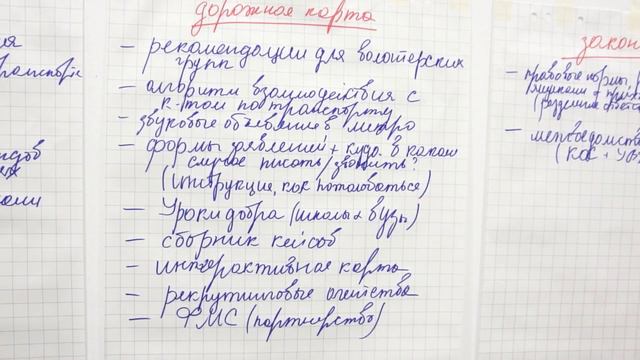 дорожная карта
— рекомендации для волотерских
групп
— алгоритм взаимодействия с
к-том по транспорту
— звуковые объявление в метро
— формы заявлений + куда в каком
случае писать/звонить?
(инструкция, как пожаловаться)
— Уроки добра (школы + вузы)
— сборник кейсов
— интерактивная карта
— рекрутинговые агетства
— ФМС (партнерство)
закон
— правовые нормы
— межведомств